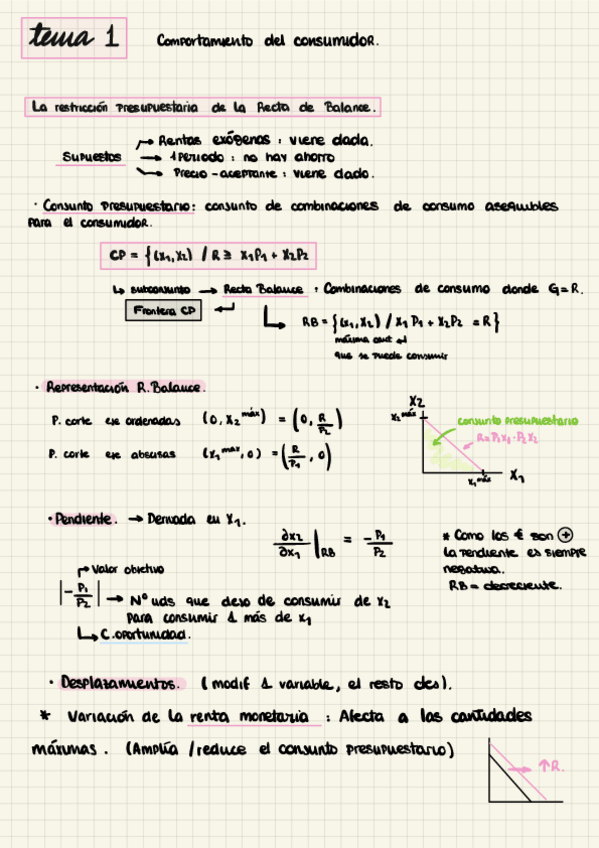 tema 1 Comportamiento del consumidor.
La restricción presupuestaria de la Recta de Balance.
Supuestos → Rentas exógenas : viene dada.
→ 1 Periodo : no hay ahorro
→ Precio - aceptante : viene dado.
· Conjunto presupuestario: conjunto de combinaciones de consumo asequibles
para el consumidor.
CP = { (x1, x2) / R ≥ x1P1 + x2P2
↳ subconjunto → Recta Balance : Combinaciones de consumo donde G = R.
Frontera CP
RB = { (x1, x2) / x1 P1 + x2P2 = R }
máxima cant
que se puede consumir
· Representación R. Balance.
P. corte eje ordenadas (0, x2 máx) = (0, R/P2)
P. corte eje abcisas (x1 max, 0) = (R/P1, 0)
X2
x2 máx
conjunto presupuestario
R = P1x1 · P2 x2
x1 máx
X1
· Pendiente. → Derivada en x1.
∂x2/∂x1 |RB = -P1/P2
* Como los € son ⊕
la pendiente es siempre
negativa.
RB = decreciente.
→ Valor objetivo
|-P1/P2| → Nº uds que dejo de consumir de x2
para consumir 1 más de x1
↳ C. oportunidad.
· Desplazamientos. (modif 1 variable, el resto ctes).
* Variación de la renta monetaria : Afecta a las cantidades
máximas. (Amplía / reduce el conjunto presupuestario)
↑R.